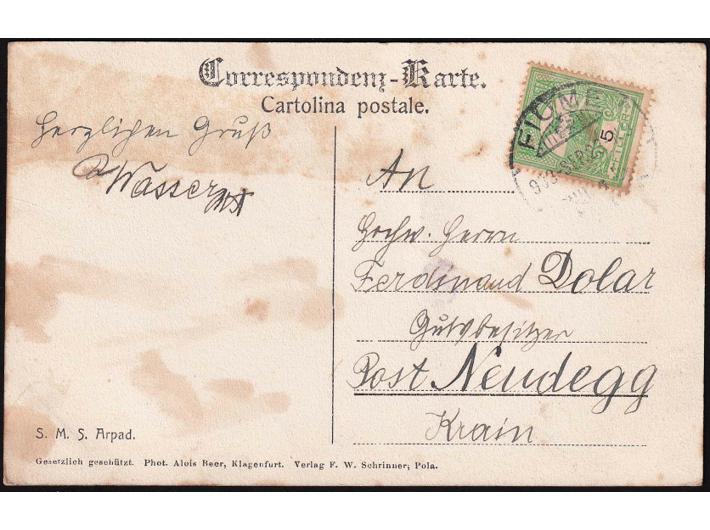 Correspondenz-Karte.
Cartolina postale.
Herzlichen Gruß
FIUME
5
An
Hochw. Herrn
Ferdinand Dolar
Gutsbesitzer
Post Neudegg
Krain
S. M. S. Arpad.
Gesetzlich geschützt. Phot. Alois Beer, Klagenfurt. Verlag F. W. Schrinner, Pola.